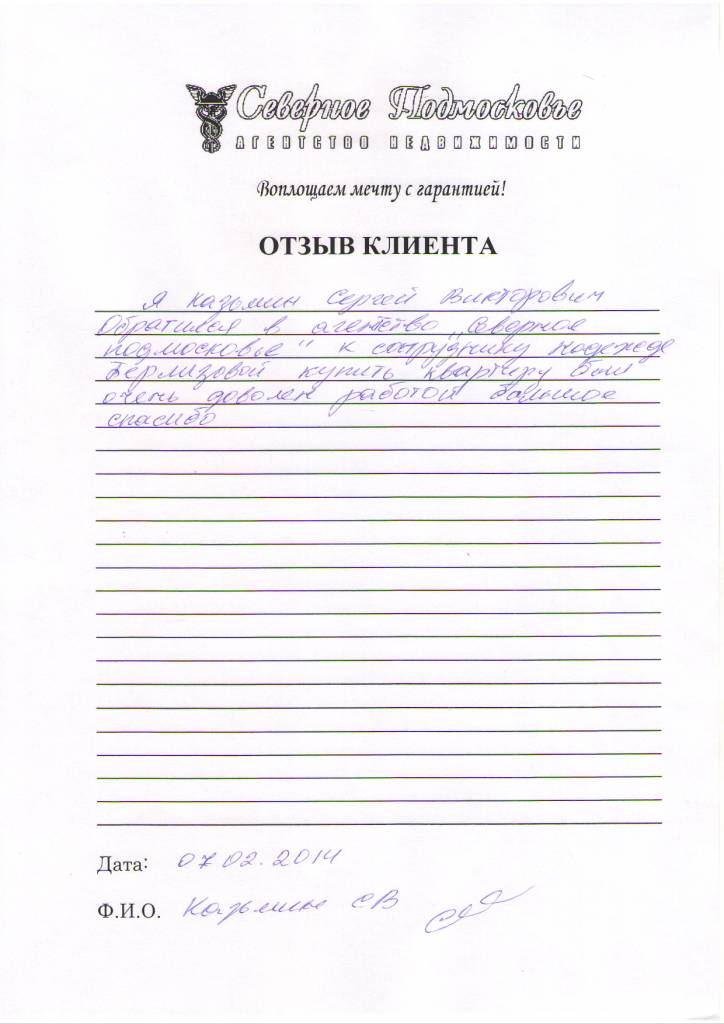 Северное Подмосковье
АГЕНТСТВО НЕДВИЖИМОСТИ
Воплощаем мечту с гарантией!
ОТЗЫВ КЛИЕНТА
Я Казьмин Сергей Викторович
Обратился в агентство „Северное
подмосковье" к сотруднику Надежде
Берлизовой купить квартиру был
очень доволен работой большое
спасибо
Дата: 07 02. 2014
Ф.И.О. Казьмин СВ